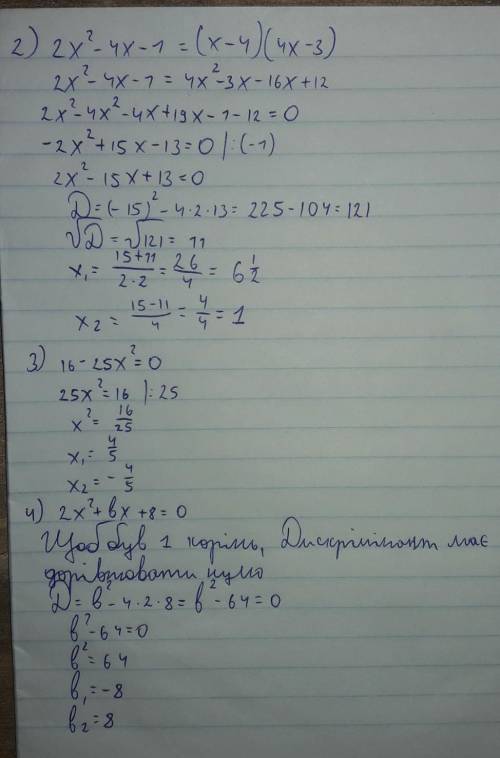 2) 2x² - 4x - 1 = (x - 4)(4x - 3)
2x² - 4x - 1 = 4x² - 3x - 16x + 12
2x² - 4x² - 4x + 19x - 1 - 12 = 0
-2x² + 15x - 13 = 0 |: (-1)
2x² - 15x + 13 = 0
D = (-15)² - 4·2·13 = 225 - 104 = 121
√D = √121 = 11
x₁ = (15+11)/(2·2) = 26/4 = 6 1/2
x₂ = (15-11)/4 = 4/4 = 1
3) 16 - 25x² = 0
25x² = 16 |: 25
x² = 16/25
x₁ = 4/5
x₂ = - 4/5
4) 2x² + bx + 8 = 0
Щоб був 1 корінь, Дискрімінант має
дорівнювати нулю
D = b² - 4·2·8 = b² - 64 = 0
b² - 64 = 0
b² = 64
b₁ = -8
b₂ = 8